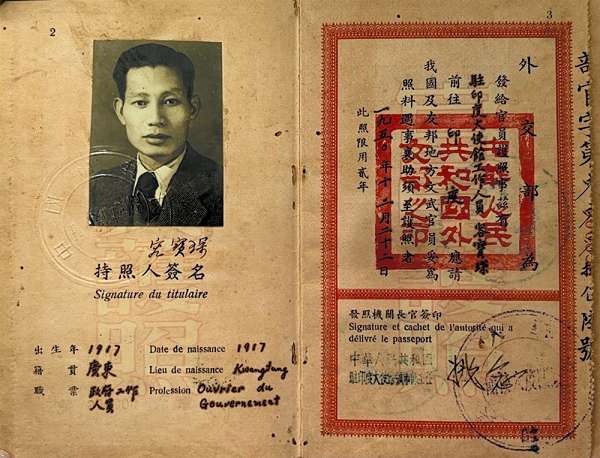 2
寶琛
持照人簽名
Signature du titulaire
出生年 1917 Date de naissance 1917
籍貫 廣東 Lieu de naissance Kwangtung
職業 政府工作 Profession Ouvrier du
人員 Gouvernement
3
部官字第
號
外交部為
發給官員護照事茲有
駐印度大使館工作人員 寶琛
前往印度應請
我國及友邦地方文武官員妥為
照料遇事襄助須至護照者
一九五〇年十二月二十二日
此照限用貳年
中華人民
共和國外
交部之印
發照機關長官簽印
Signature et cachet de l'autorité qui a
délivré le passeport
中華人民共和國
駐印度大使館